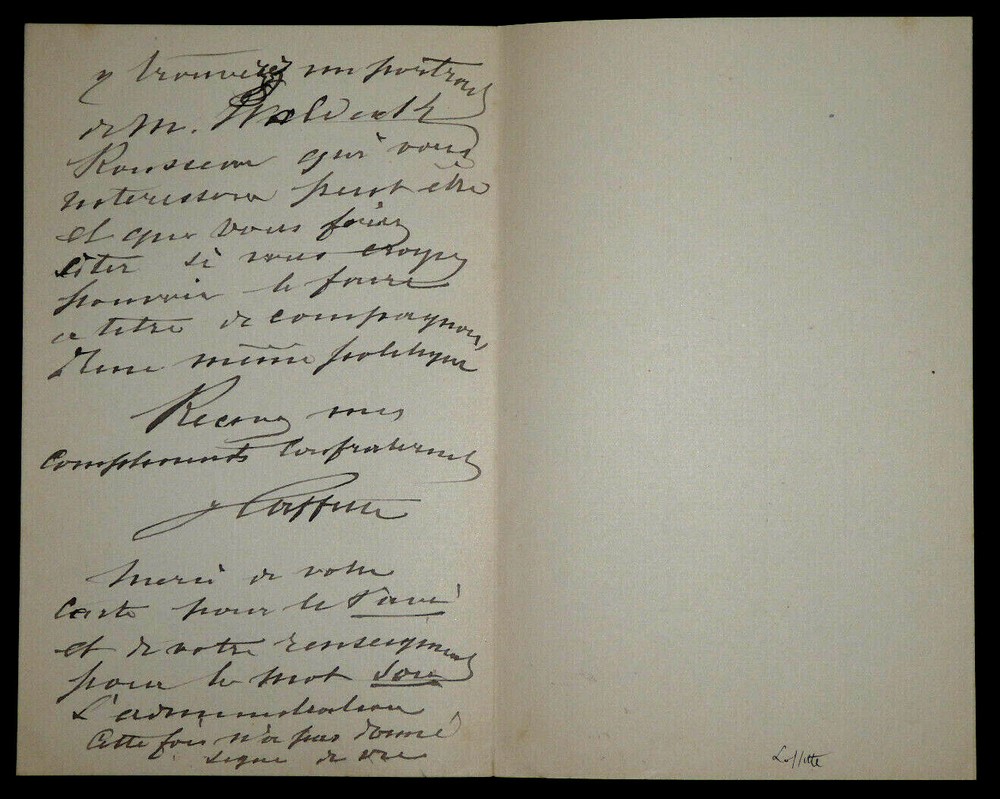 y trouverez un portrait
de M. Waldeck
Rousseau qui vous
interessera peut être
et que vous ferez
citer si vous croyez
pouvoir le faire
a titre de compagnon
d'une même politique
Recevez mes
compliments confraternels
J Laffitte
Merci de votre
carte pour le
et de votre renseignement
pour le mot
L'administration
cette fois n'a pas donné
signe de vie
Laffitte